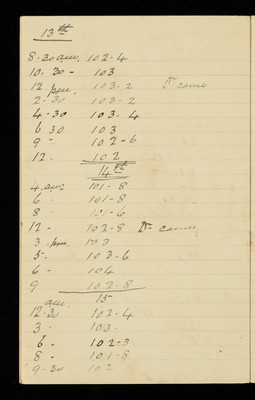 13th
8.30 am, 102-4
10. 30 - 103
12 pm. 103.2 Dr came
2-30 103-2
4.30 103.4
6 30 103
9 - 102-6
12. 102
14th
4. am; 101-8
6 - 101-8
8 101-6
12 - 102-8 Dr came,
3 - pm. 103
5- 103-6
6 - 104
9 102-8
15-
am.
12-30 102-4
3 - 103.
6 - 102-3
8 - 101-8
9-30